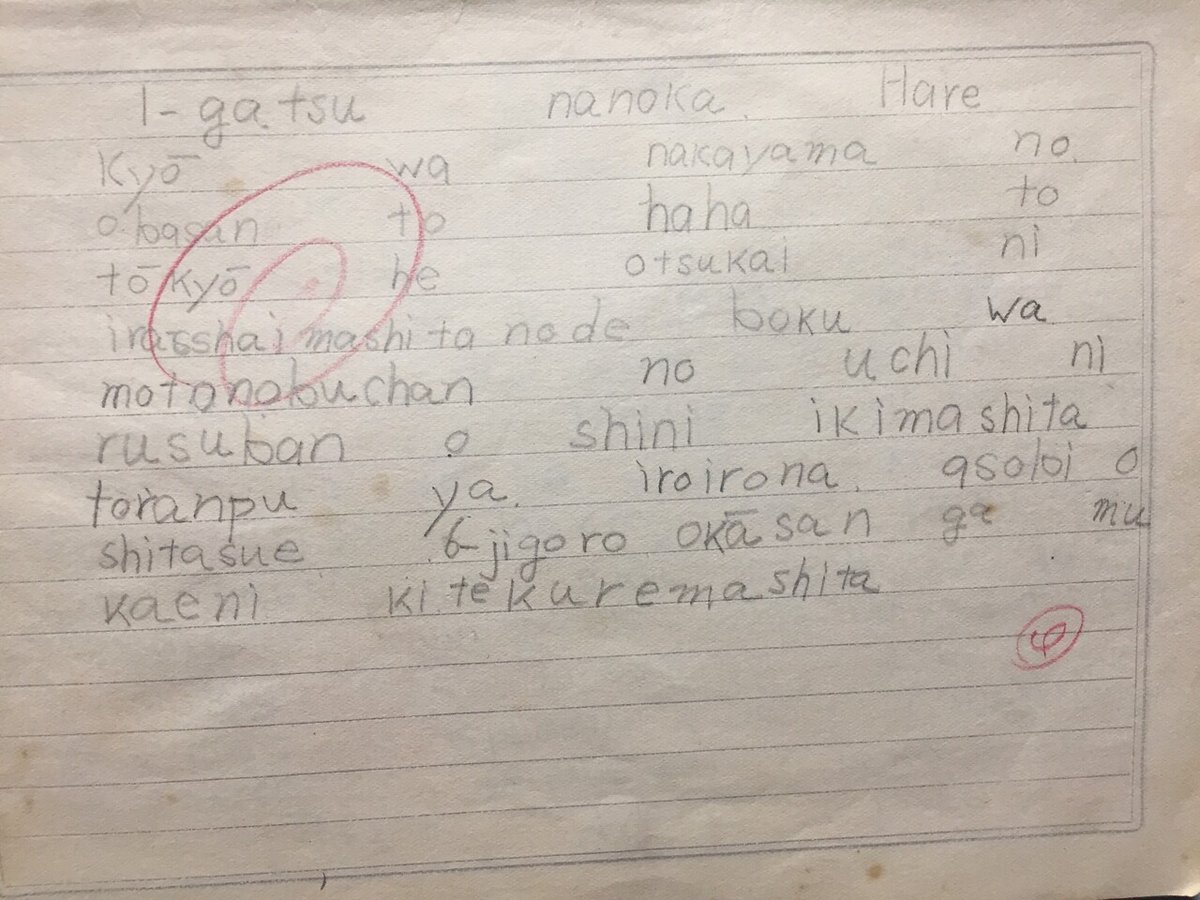 1-gatsu nanoka. Hare
Kyō wa nakayama no.
obasan to haha to
tōkyō he otsukai ni
irasshaimashita node boku wa
motonobuchan no uchi ni
rusuban o shini ikimashita
toranpu ya. iroirona. asobi o
shitasue 6-jigoro okāsan ga mu
kaeni kitekuremashita